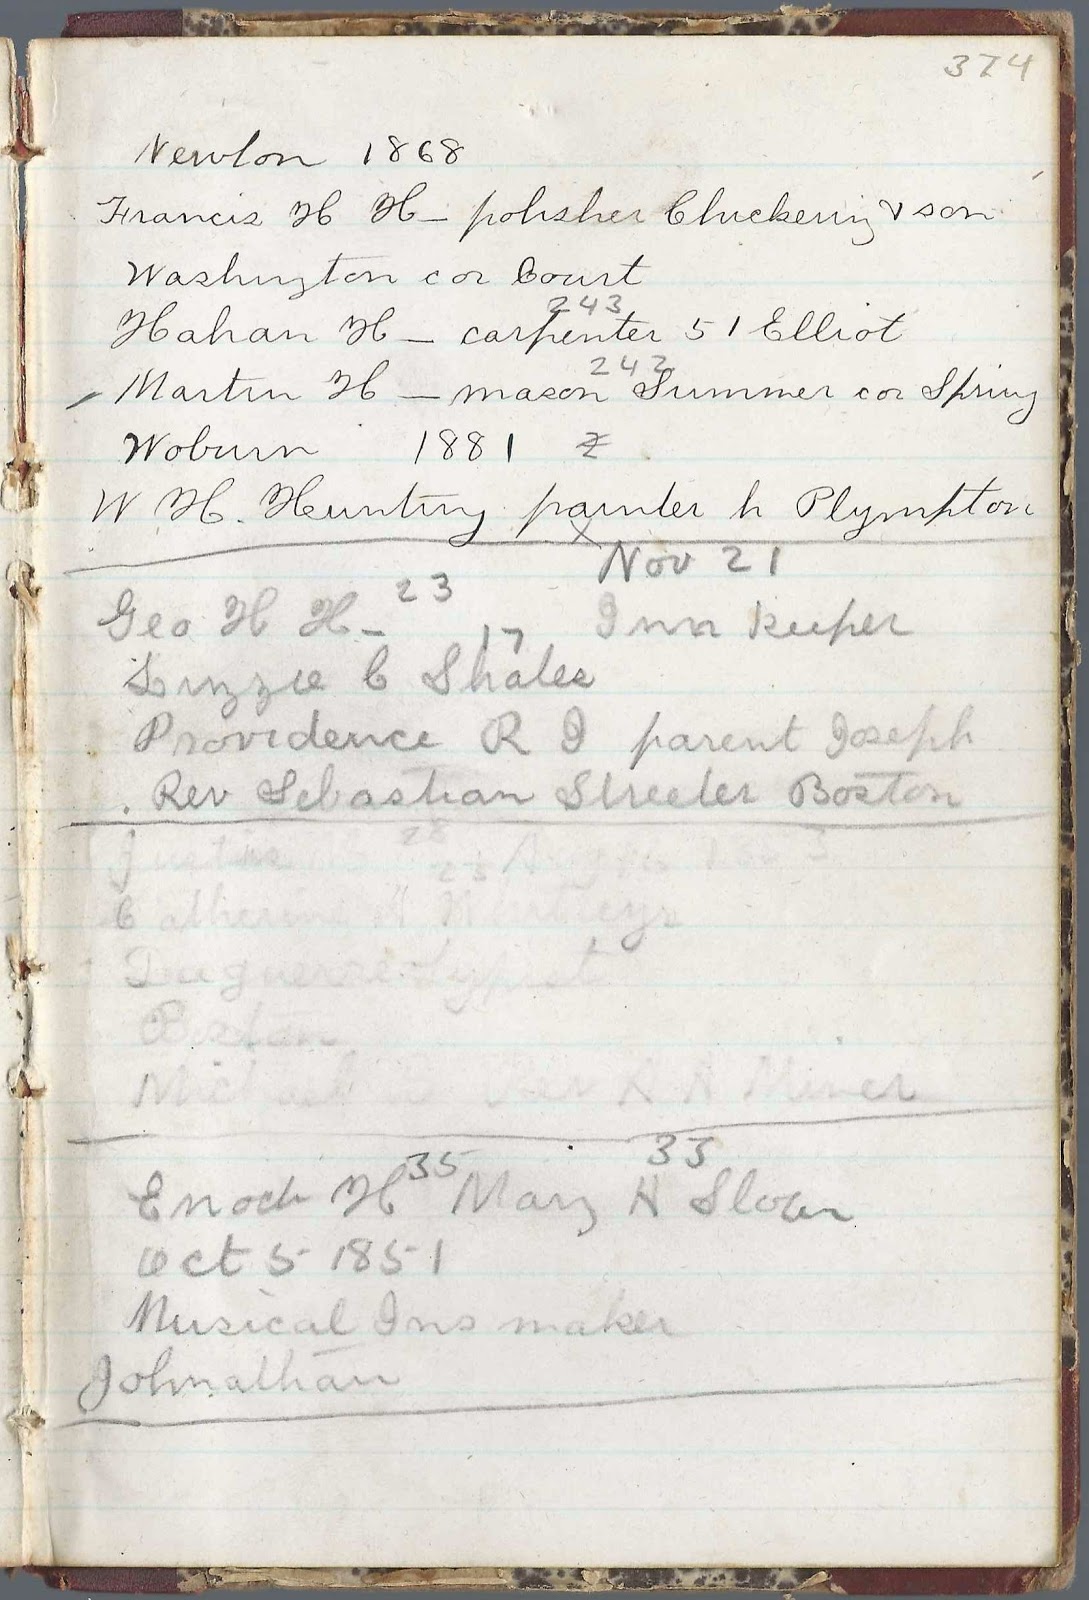 374
Newton 1868
Francis H H- polisher Chickering & son
Washington cor Court
243
Hahan H - carpenter 51 Elliot
242
Martin H - mason Summer cor Spring
Woburn 1881
W H. Hunting painter h Plympton
x
Nov 21
23
Geo H H- Inn keeper
17
Lizzie C Shales
Providence R I parent Joseph
Rev Sebastian Streeter Boston
28
23
Catherine
Daguerre-typist
Boston
Michael Rev A A Miner
35 33
Enoch H Mary H Sloan
Oct 5 1851
Musical Ins maker
Johnathan